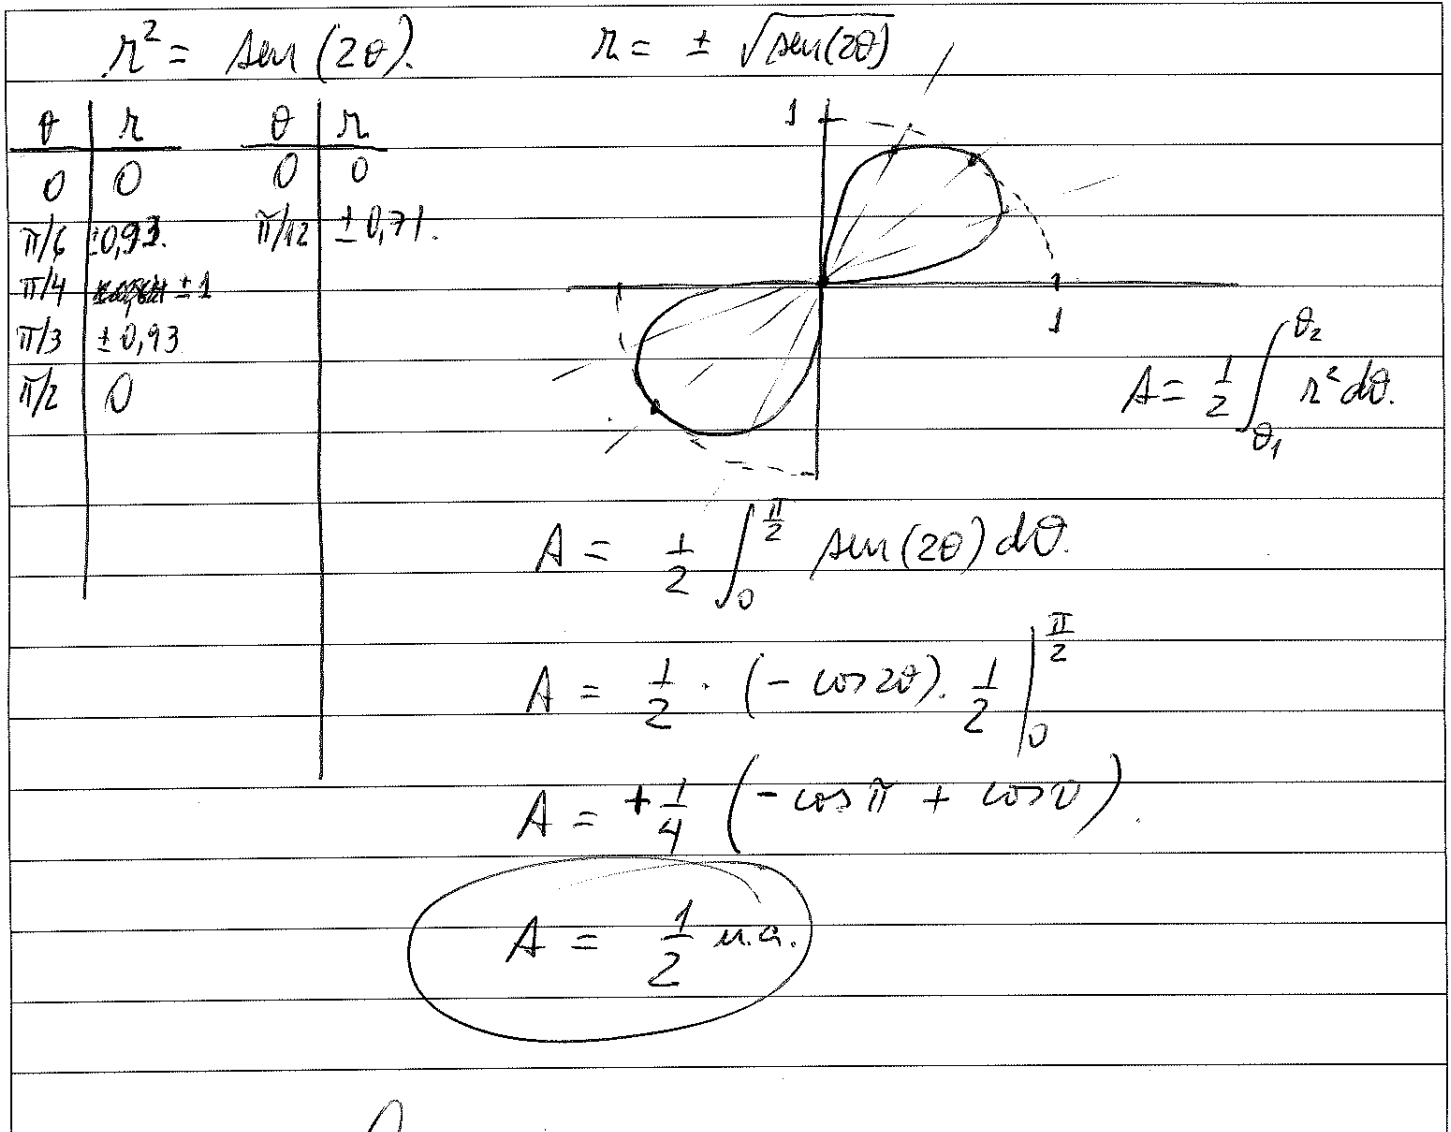 r² = sen(2θ). r = ± √sen(2θ)
θ | r θ | r
0 | 0 0 | 0
π/6 | ±0,93. π/12 | ±0,71.
π/4 | ±1
π/3 | ±0,93
π/2 | 0
1
1
A = 1/2 ∫_θ₁^θ₂ r² dθ.
A = 1/2 ∫_0^(π/2) sen(2θ) dθ.
A = 1/2 · (- cos 2θ). 1/2 |_0^(π/2)
A = +1/4 (- cos π + cos 0).
A = 1/2 u.a.